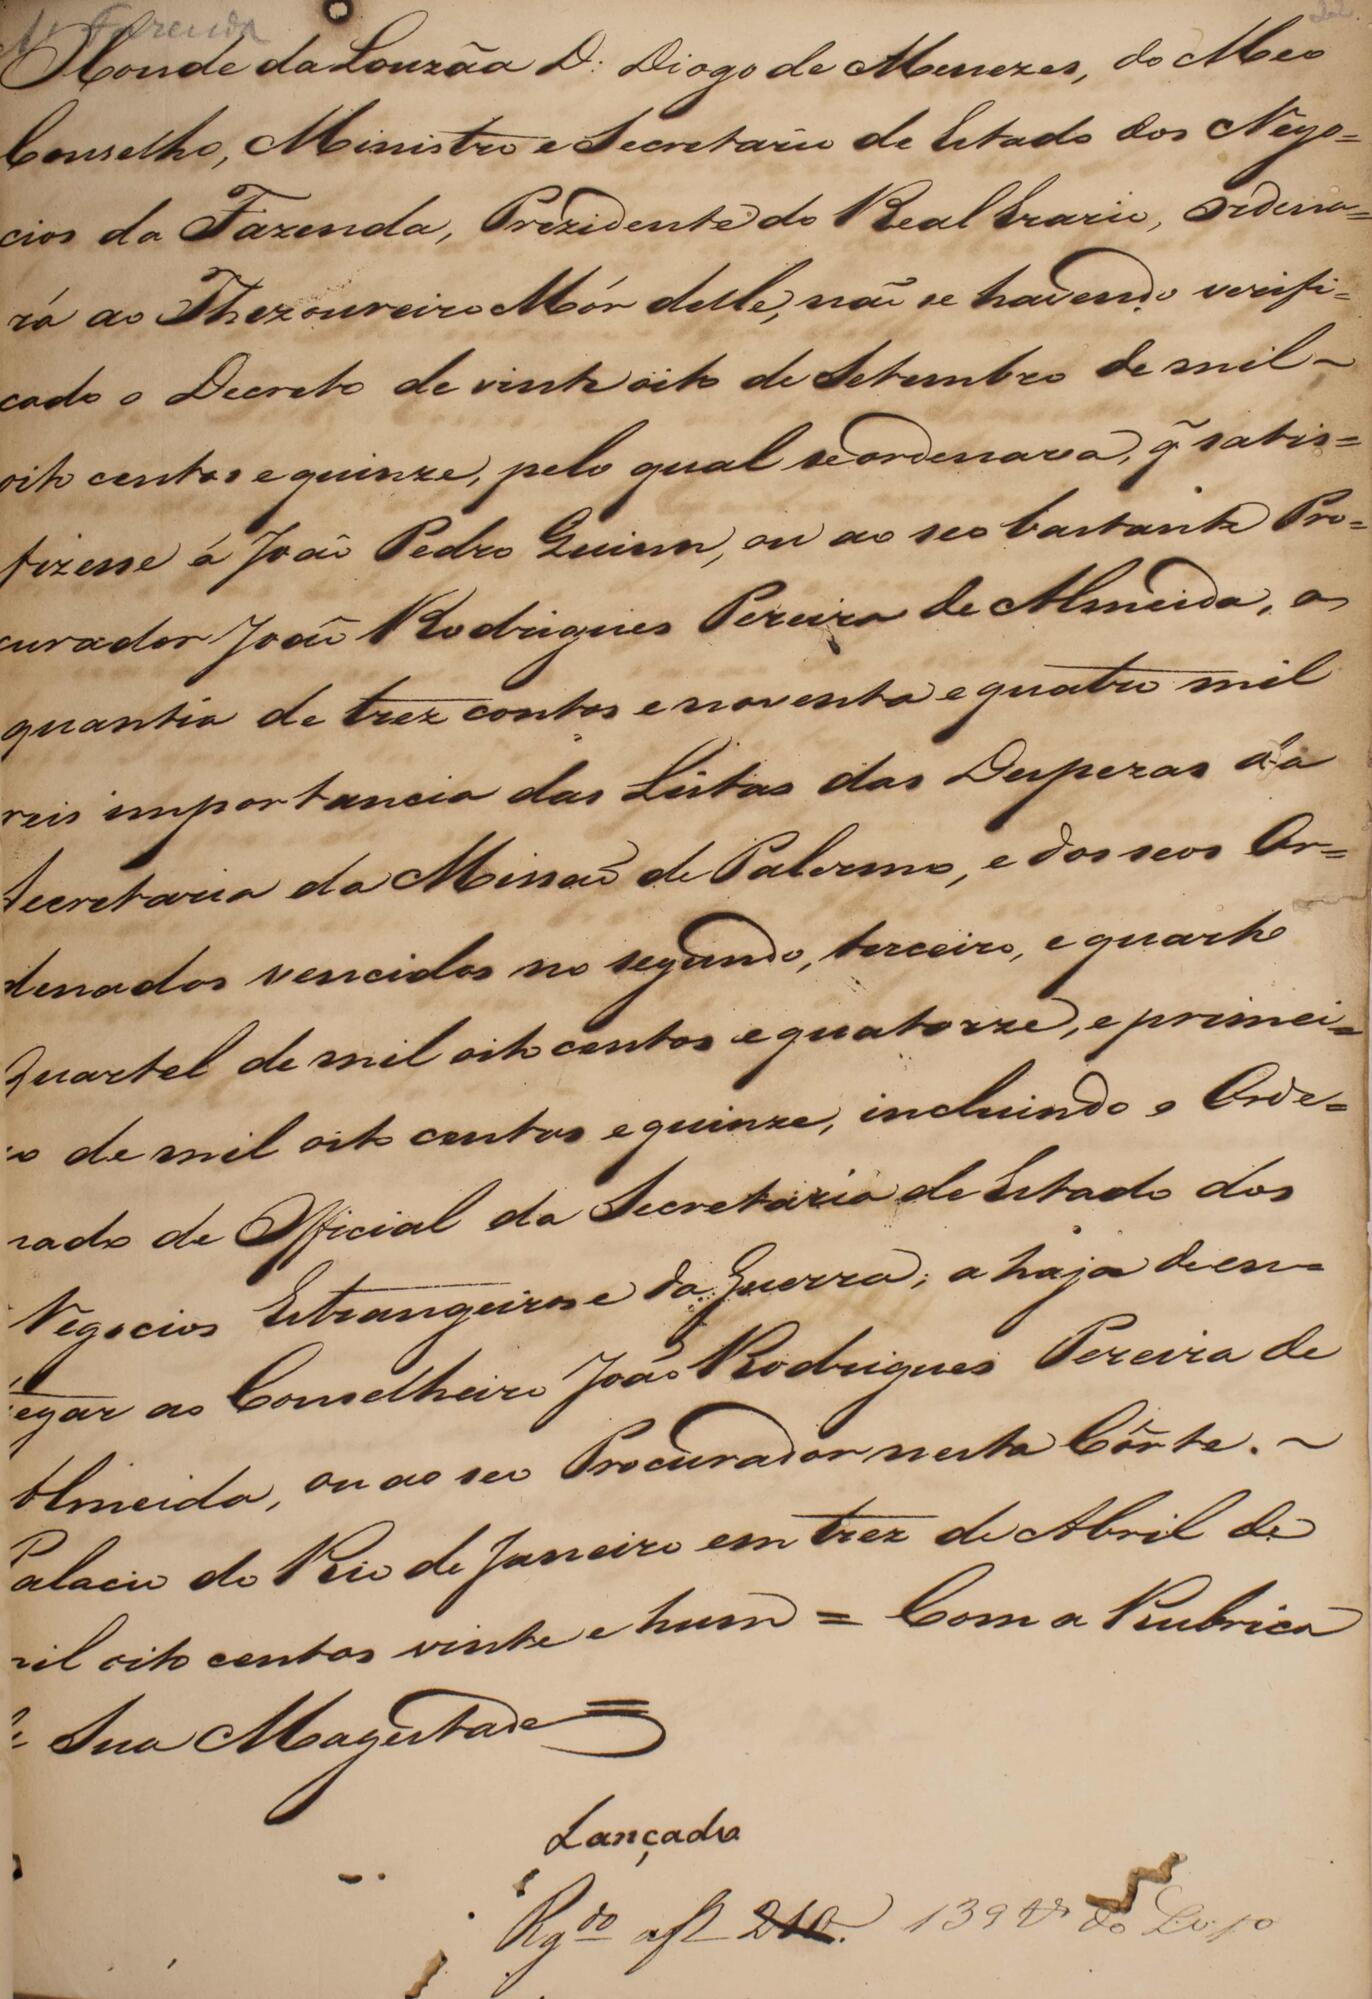 Mr Fazenda
O Conde da Louzãa D. Diogo de Menezes, do Meo
Conselho, Ministro e Secretario de Estado dos Nego=
cios da Fazenda, Prezidente do Real Erario, ordena=
rá ao Thezoureiro Mór delle, não se havendo verifi=
cado o Decreto de vinte oito de Setembro de mil ~
oito centos e quinze, pelo qual se ordenava, q̃ satis=
fizesse á João Pedro Quinn, ou ao seo bastante Pro=
curador João Rodrigues Pereira de Almeida, a
quantia de trez contos e noventa e quatro mil
reis importancia das Listas das Despezas da
Secretaria da Missaõ de Palermo, e dos seos Or=
denados vencidos no segundo, terceiro, e quarto
Quartel de mil oito centos e quatorze, e primei=
ro de mil oito centos e quinze, incluindo o Orde=
nado de Official da Secretaria de Estado dos
Negocios Estrangeiros e da Guerra; a haja de en=
tregar ao Conselheiro João Rodrigues Pereira de
Almeida, ou ao seo Procurador nesta Côrte. ~
Palacio do Rio de Janeiro em trez de Abril de
mil oito centos vinte e hum = Com a Rubrica
de Sua Magestade =
Lançado
Rgdo a f 210. 139 do Lo 10